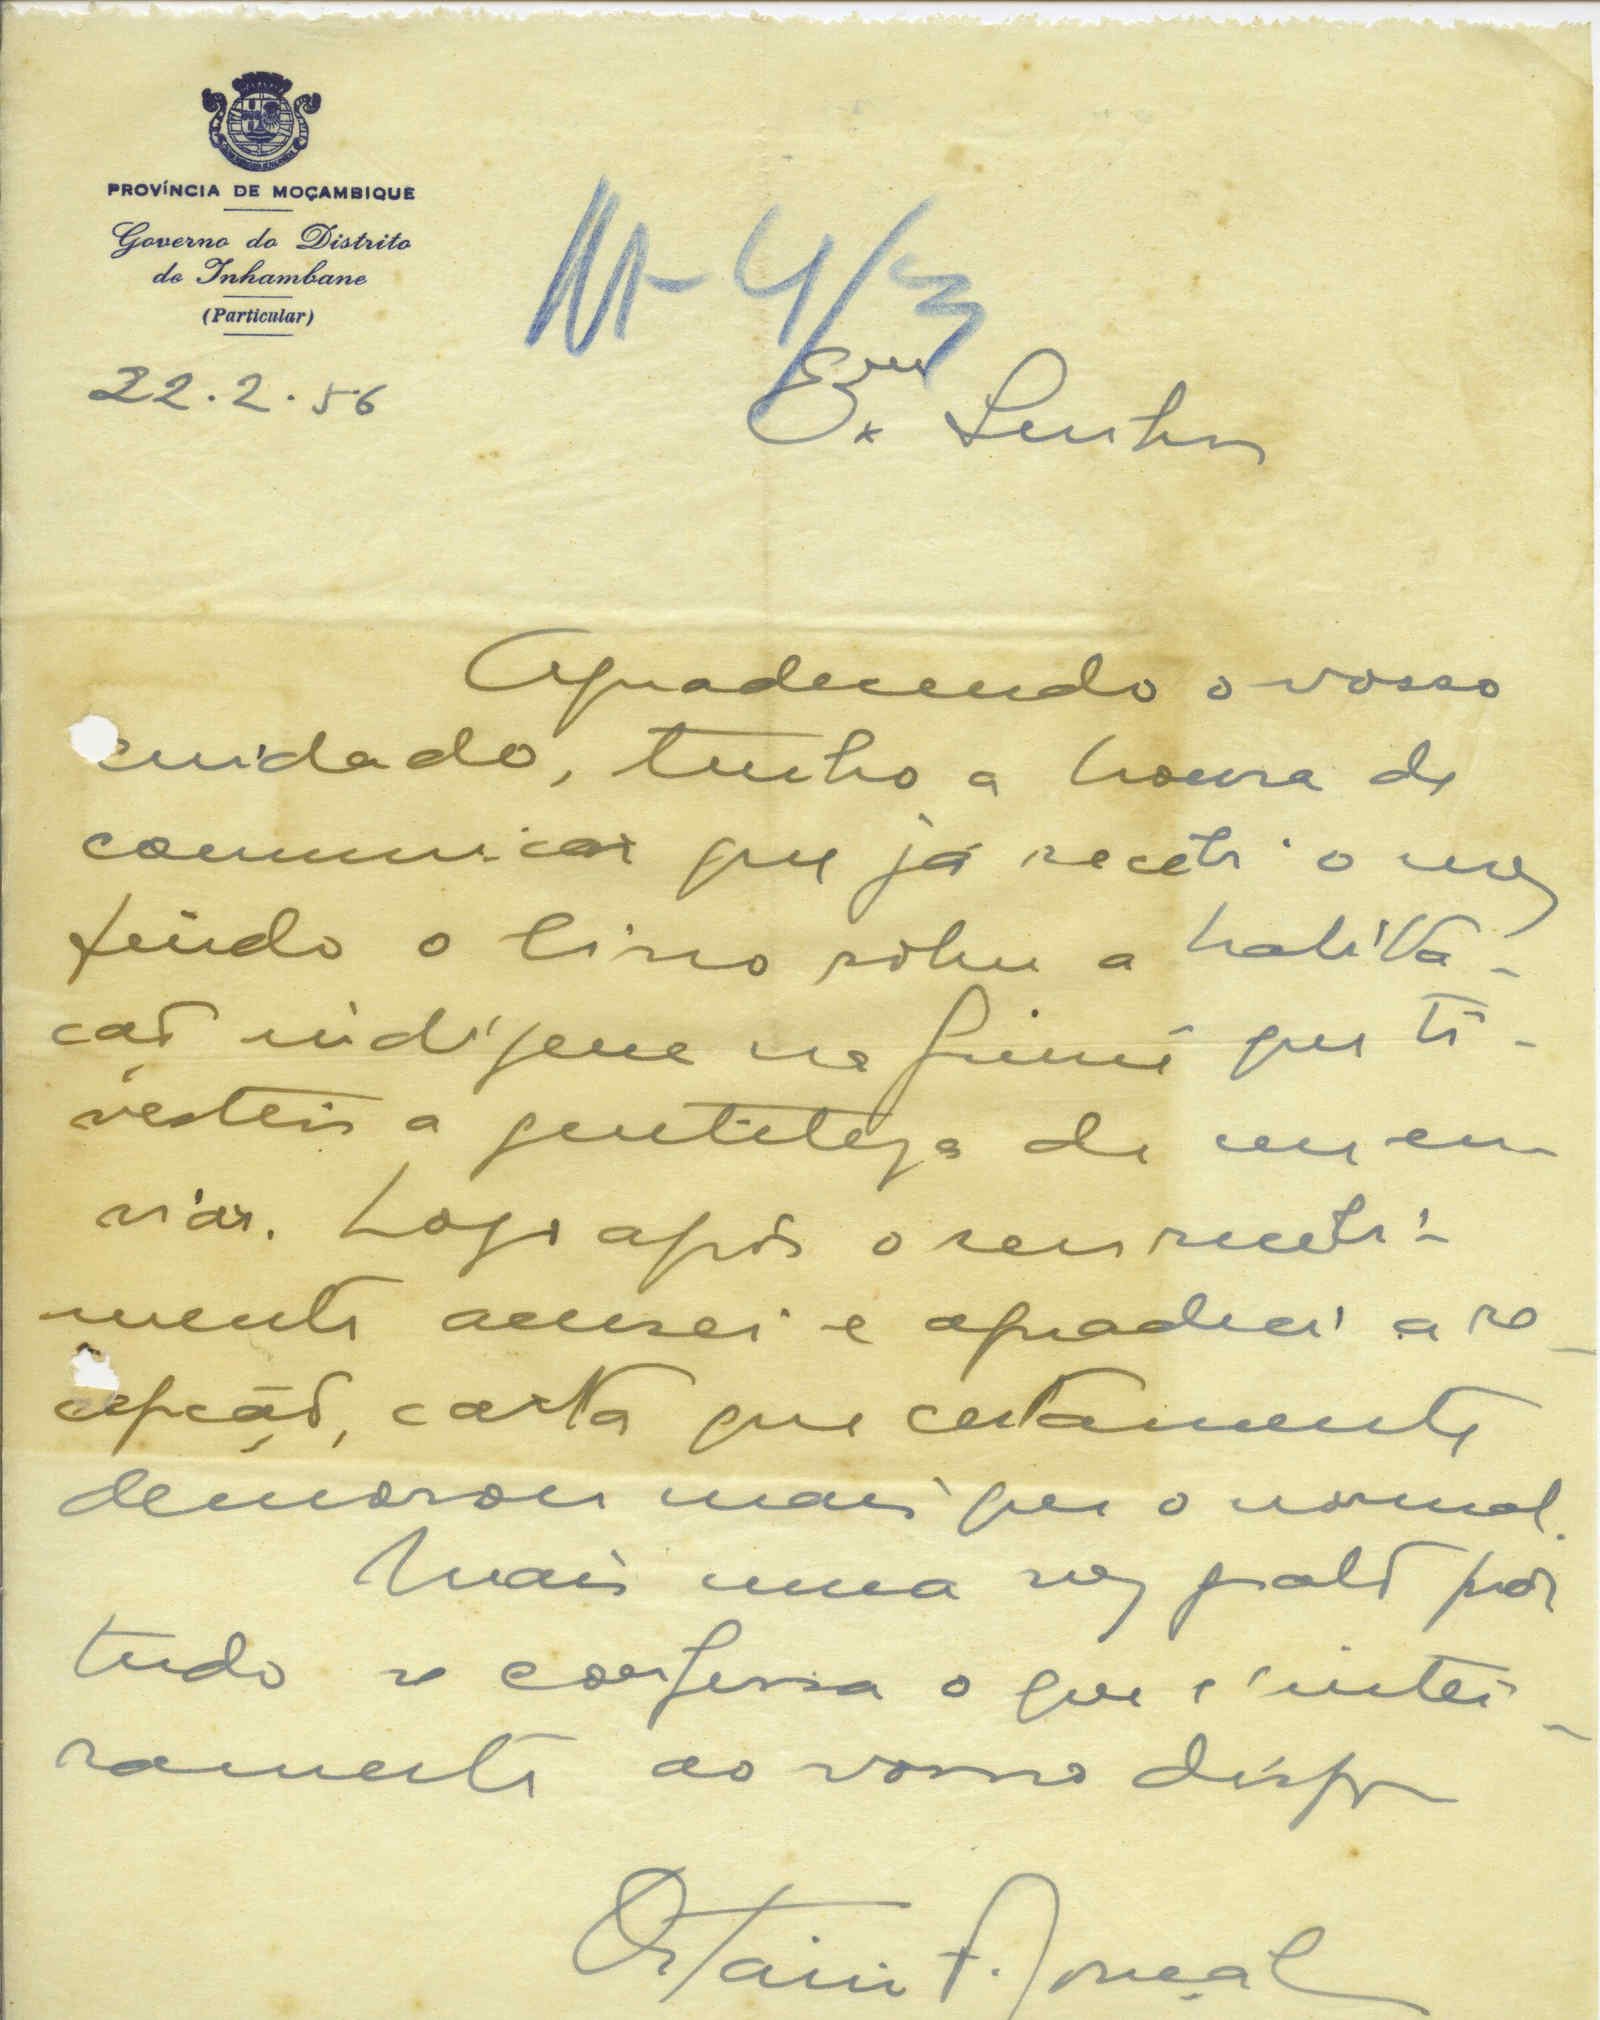 PROVÍNCIA DE MOÇAMBIQUE
Governo do Distrito
de Inhambane
(Particular)
22.2.56
4/3
Exmo. Senhor
Agradecendo o vosso
cuidado, tenho a honra de
comunicar que já recebi o
o livro sobre a habita-
ção indígena na Guiné que ti-
vesteis a gentileza de me en-
viar. Logo após o seu recebi-
mento acusei e agradeci a re-
cepção, carta que certamente
demorou mais que o normal.
Mais uma vez grato por
tudo se confessa o que é intei-
ramente ao vosso dispor